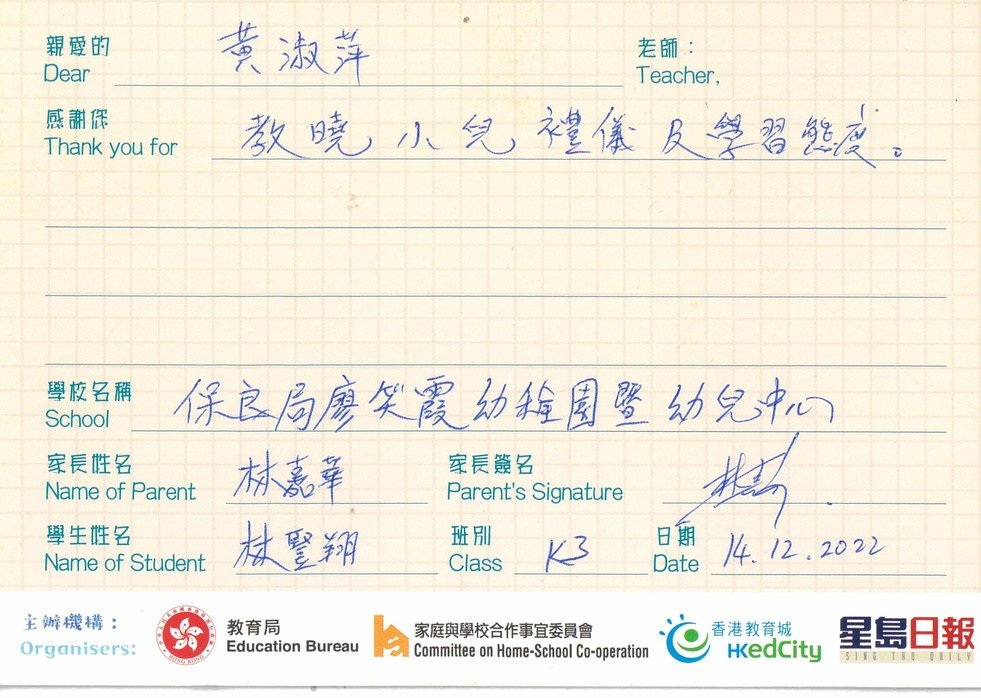 親愛的 黃淑萍 老師：
Dear Teacher,
感謝您 教曉小兒禮儀及學習態度。
Thank you for
學校名稱 保良局廖笑霞幼稚園暨幼兒中心
School
家長姓名 林嘉華 家長簽名
Name of Parent Parent's Signature
學生姓名 林 翔 班別 K3 日期 14.12.2022
Name of Student Class Date
主辦機構： 教育局 家庭與學校合作事宜委員會 香港教育城 星島日報
Organisers: Education Bureau Committee on Home-School Co-operation HKedCity SING TAO DAILY
HONG KONG